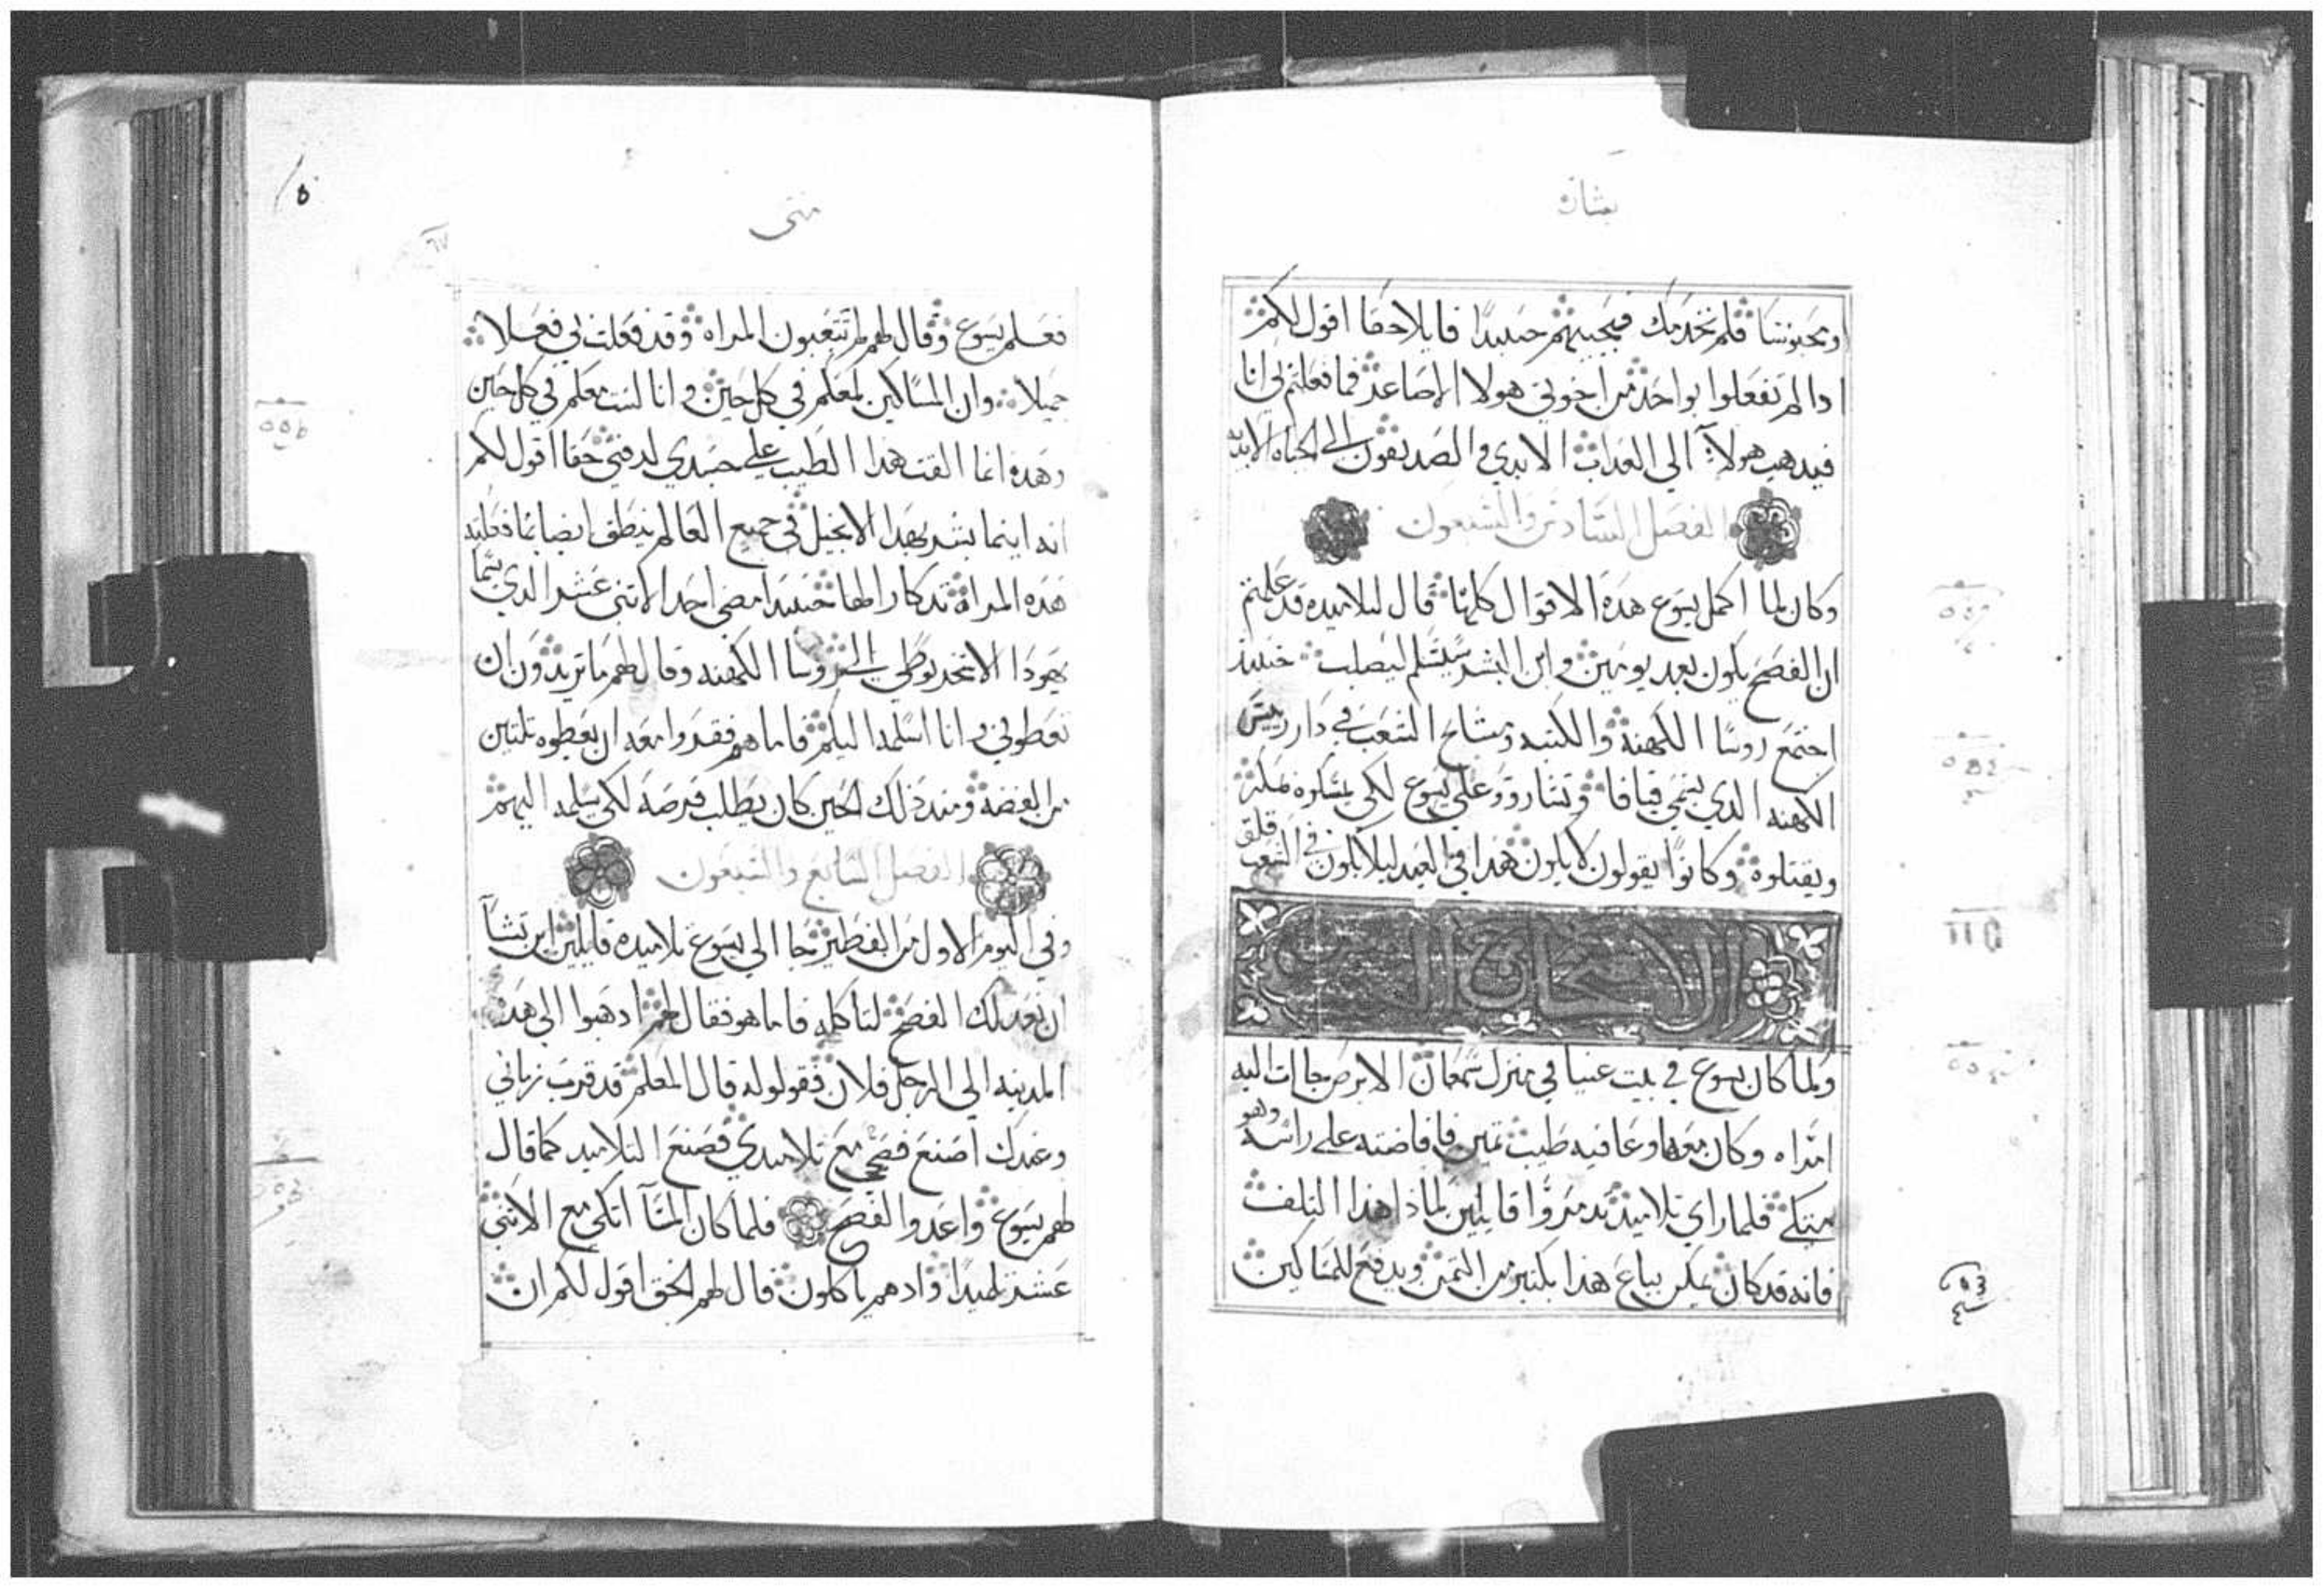 بشاره
ومحبوسا فلم نخدمك فيجيبهم حينيدا قايلا حقا اقول لكم
ادا لم تفعلوا بواحد من اخوتي هولا الاصاغر فما فعلتم لي انا
فيدهب هولا الي العداب الابدي و الصديقون الي الحياه الابديه
الفصل السادس والسبعون
وكان لما اكمل يسوع هده الاقوال كلها قال لتلاميده قد علمتم
ان الفصح يكون بعد يومين و ابن البشر سيسلم ليصلب حينيد
اجتمع روسا الكهنه والكتبه ومشايخ الشعب في دار رييس
الكهنه الدي يسمي قيافا وتشاوروا علي يسوع لكي يمسكوه بمكر
ويقتلوه وكانوا يقولون لا يكون هدا في العيد ليلا يكون قلق في الشعب
الاصحاح
ولما كان يسوع في بيت عنيا في منزل سمعان الابرص جات اليه
امراه وكان معها وعا فيه طيب تمين فافاضته على راسه وهو
متكي فلما راي تلاميده تدمروا قايلين لماذا هذا التلف
فانه قد كان يمكن يباع هدا بكتير من التمن ويدفع للمساكين
متى
٦٧
فعلم يسوع وقال لهم لم تتعبون المراه وقد فعلت بي فعلا
جميلا وان المساكين معكم في كل حين و انا لست معكم في كل حين
وهده انما القت هدا الطيب علي جسدي لدفني حقا اقول لكم
انه اينما بشر بهدا الانجيل في جميع العالم ينطق ايضا بما فعلته
هده المراه تدكارا لها حينيدا مضى احد الاتني عشر الدي يسما
يهودا الاسخريوطي الي روسا الكهنه وقال لهم ما تريدون ان
تعطوني و انا اسلمه اليكم فاما هم فقرروا معه ان يعطوه تلتين
من الفضه ومند ذلك الحين كان يطلب فرصه لكي يسلمه اليهم
الفصل السابع والسبعون
وفي اليوم الاول من الفطير جا الي يسوع تلاميده قايلين اين تشا
ان نعد لك الفصح لتاكله فاما هو فقال لهم ادهبوا الي هده
المدينه الي الرجل فلان فقولوا له قال المعلم قد قرب زماني
وعندك اصنع فصحي مع تلاميدي فصنع التلاميد كما قال
لهم يسوع واعدوا الفصح فلما كان المسا اتكي مع الاتني
عشر تلميدا واد هم ياكلون قال لهم الحق اقول لكم ان